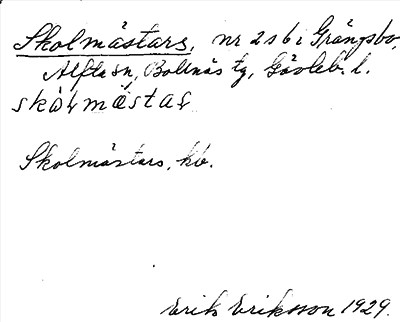 Skolmästars, nr 2 s 6 i Grängsbo,
Alfta sn, Bollnäs tg, Gävleb. l.
skàɫmǽstaʂ
Skolmästars, kb.
Erik Eriksson 1929.